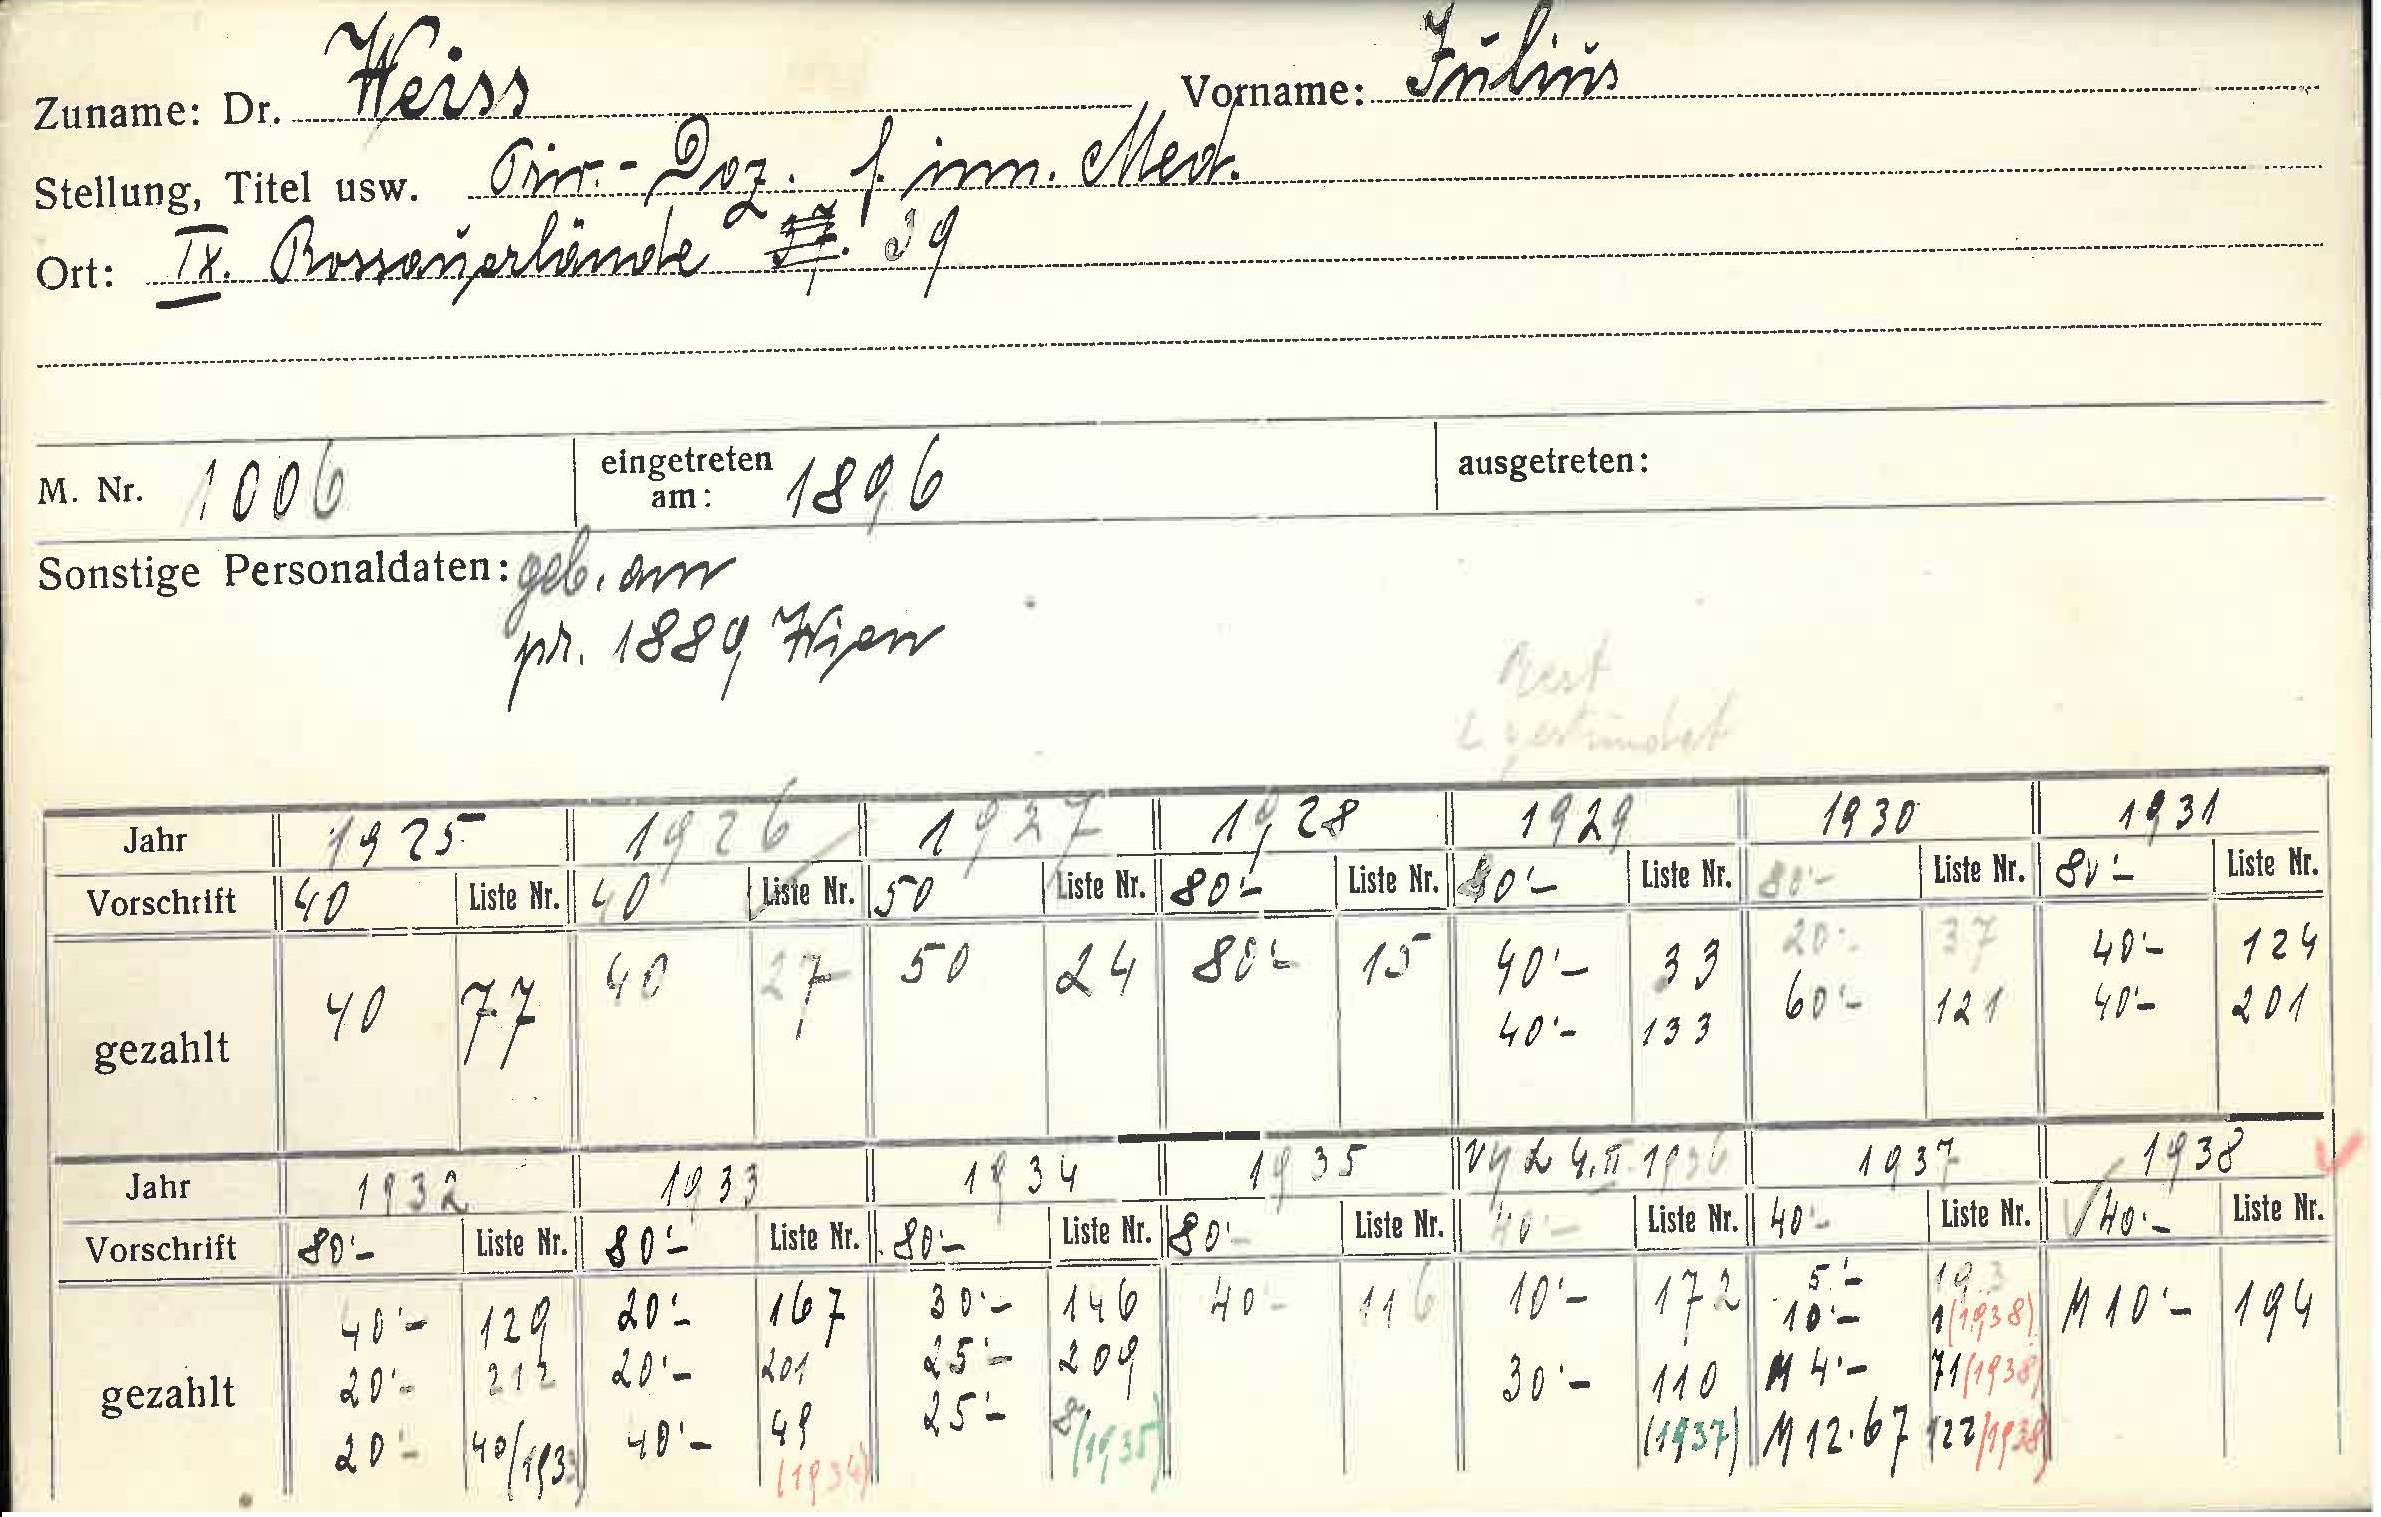 Zuname: Dr. Weiss Vorname: Julius
Stellung, Titel usw. Priv.-Doz. f. inn. Med.
Ort: IX. Rossauerlände 39
M. Nr. 1006 eingetreten am: 1896 ausgetreten:
Sonstige Personaldaten: geb. am
pr. 1889 Wien
Rest
gestundet
Jahr 1925 1926 1927 1928 1929 1930 1931
Vorschrift 40 Liste Nr. 40 Liste Nr. 50 Liste Nr. 80'- Liste Nr. 80'- Liste Nr. 80'- Liste Nr. 80'- Liste Nr.
gezahlt 40 77 40 27 50 24 80'- 15 40'- 33 20'- 37 40'- 124
40'- 133 60'- 121 40'- 201
Jahr 1932 1933 1934 1935 4.II.1936 1937 1938
Vorschrift 80'- Liste Nr. 80'- Liste Nr. 80'- Liste Nr. 80'- Liste Nr. 40'- Liste Nr. 40'- Liste Nr. 40'- Liste Nr.
gezahlt 40'- 129 20'- 167 30'- 146 40- 116 10'- 172 5'- 193 M 10'- 194
10'- 1(1938)
20'- 212 20'- 201 25'- 209 30'- 110 (1937) M 4'- 71/(1938)
20'- 40/1933 40'- 49 (1934) 25'- 8/(1935) M 12.67 122/1938)